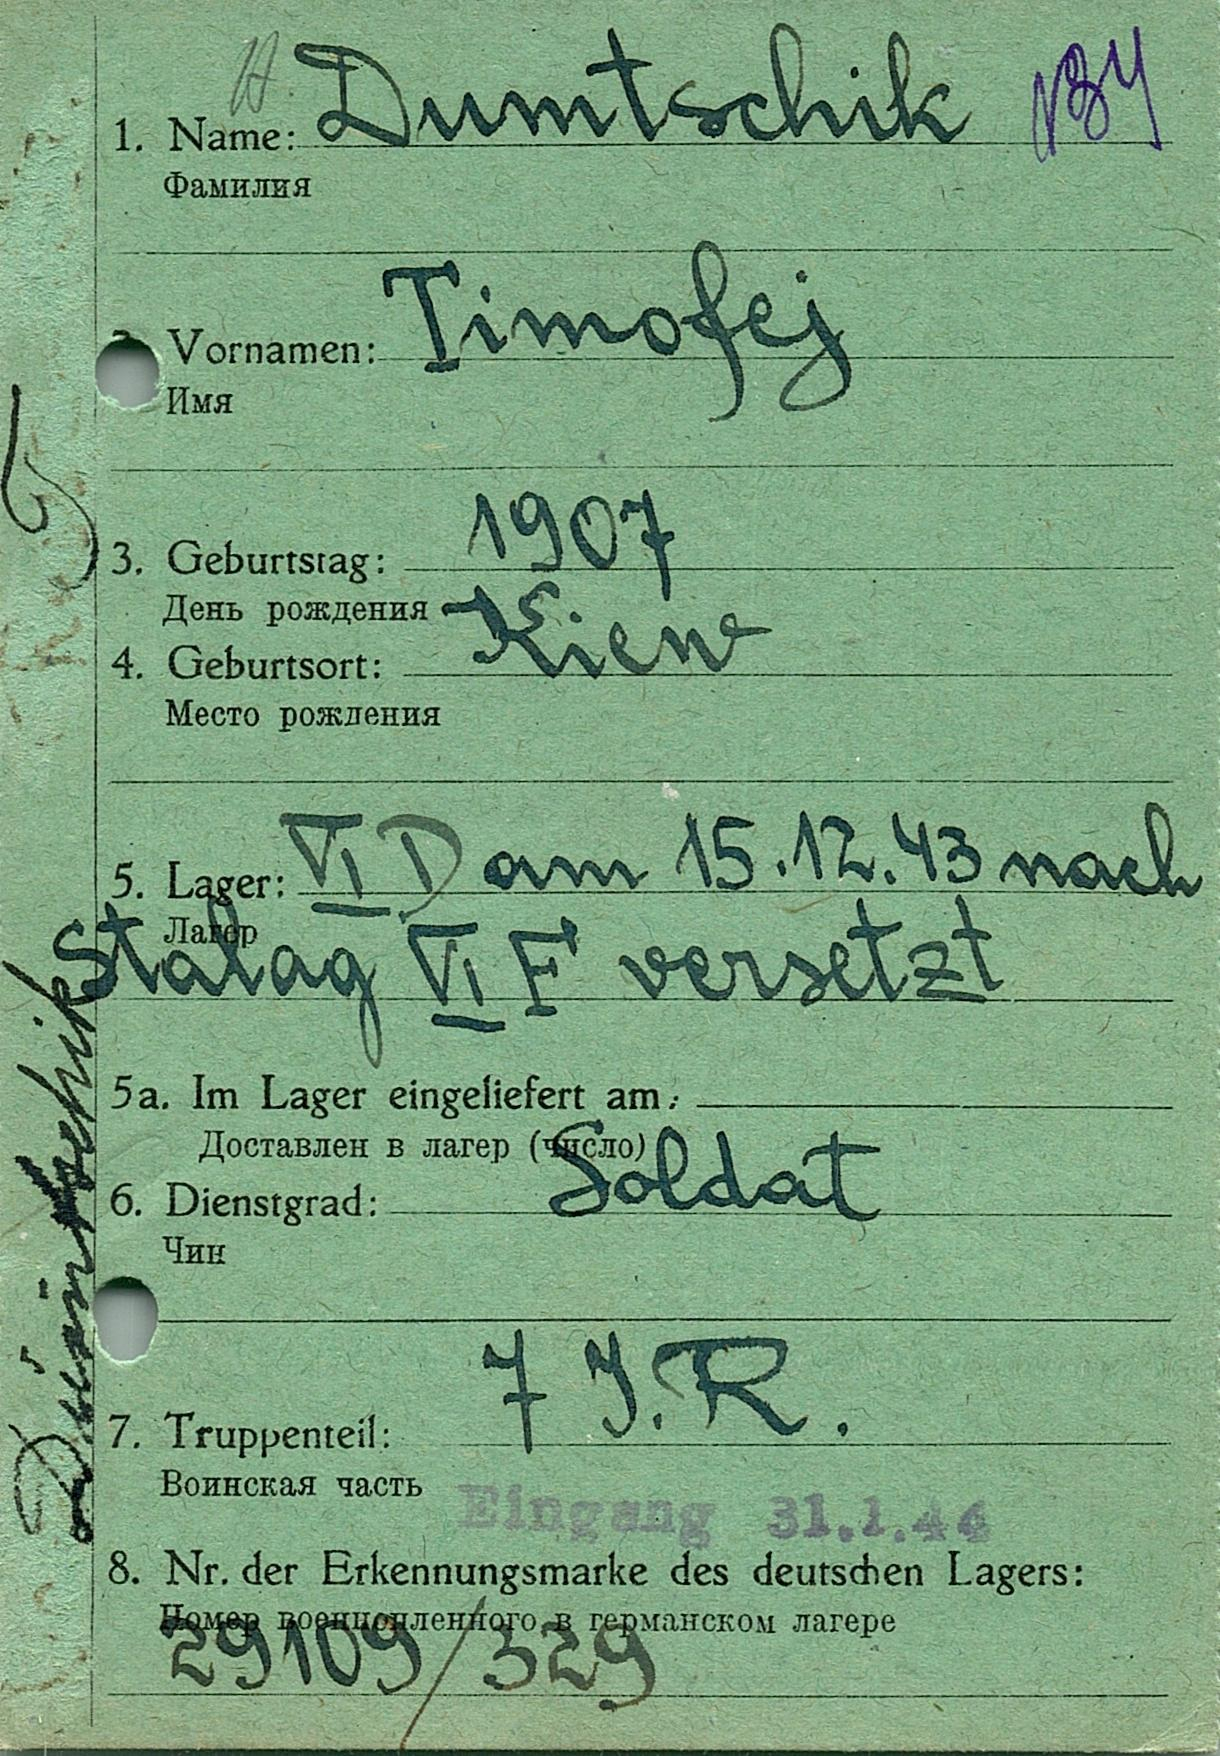 Dumtschik
1. Name:
Фамилия
Timofej
Vornamen:
Имя
1907
3. Geburtstag:
День рождения
Kiew
4. Geburtsort:
Место рождения
5. Lager: VI D am 15.12.43 nach
Лагер
Stalag VI F versetzt
5a. Im Lager eingeliefert am:
Доставлен в лагер (число)
Soldat
6. Dienstgrad:
Чин
7 J.R.
7. Truppenteil:
Воинская часть
Eingang 31.1.44
8. Nr. der Erkennungsmarke des deutschen Lagers:
Номер военнопленного в германском лагере
29109/329